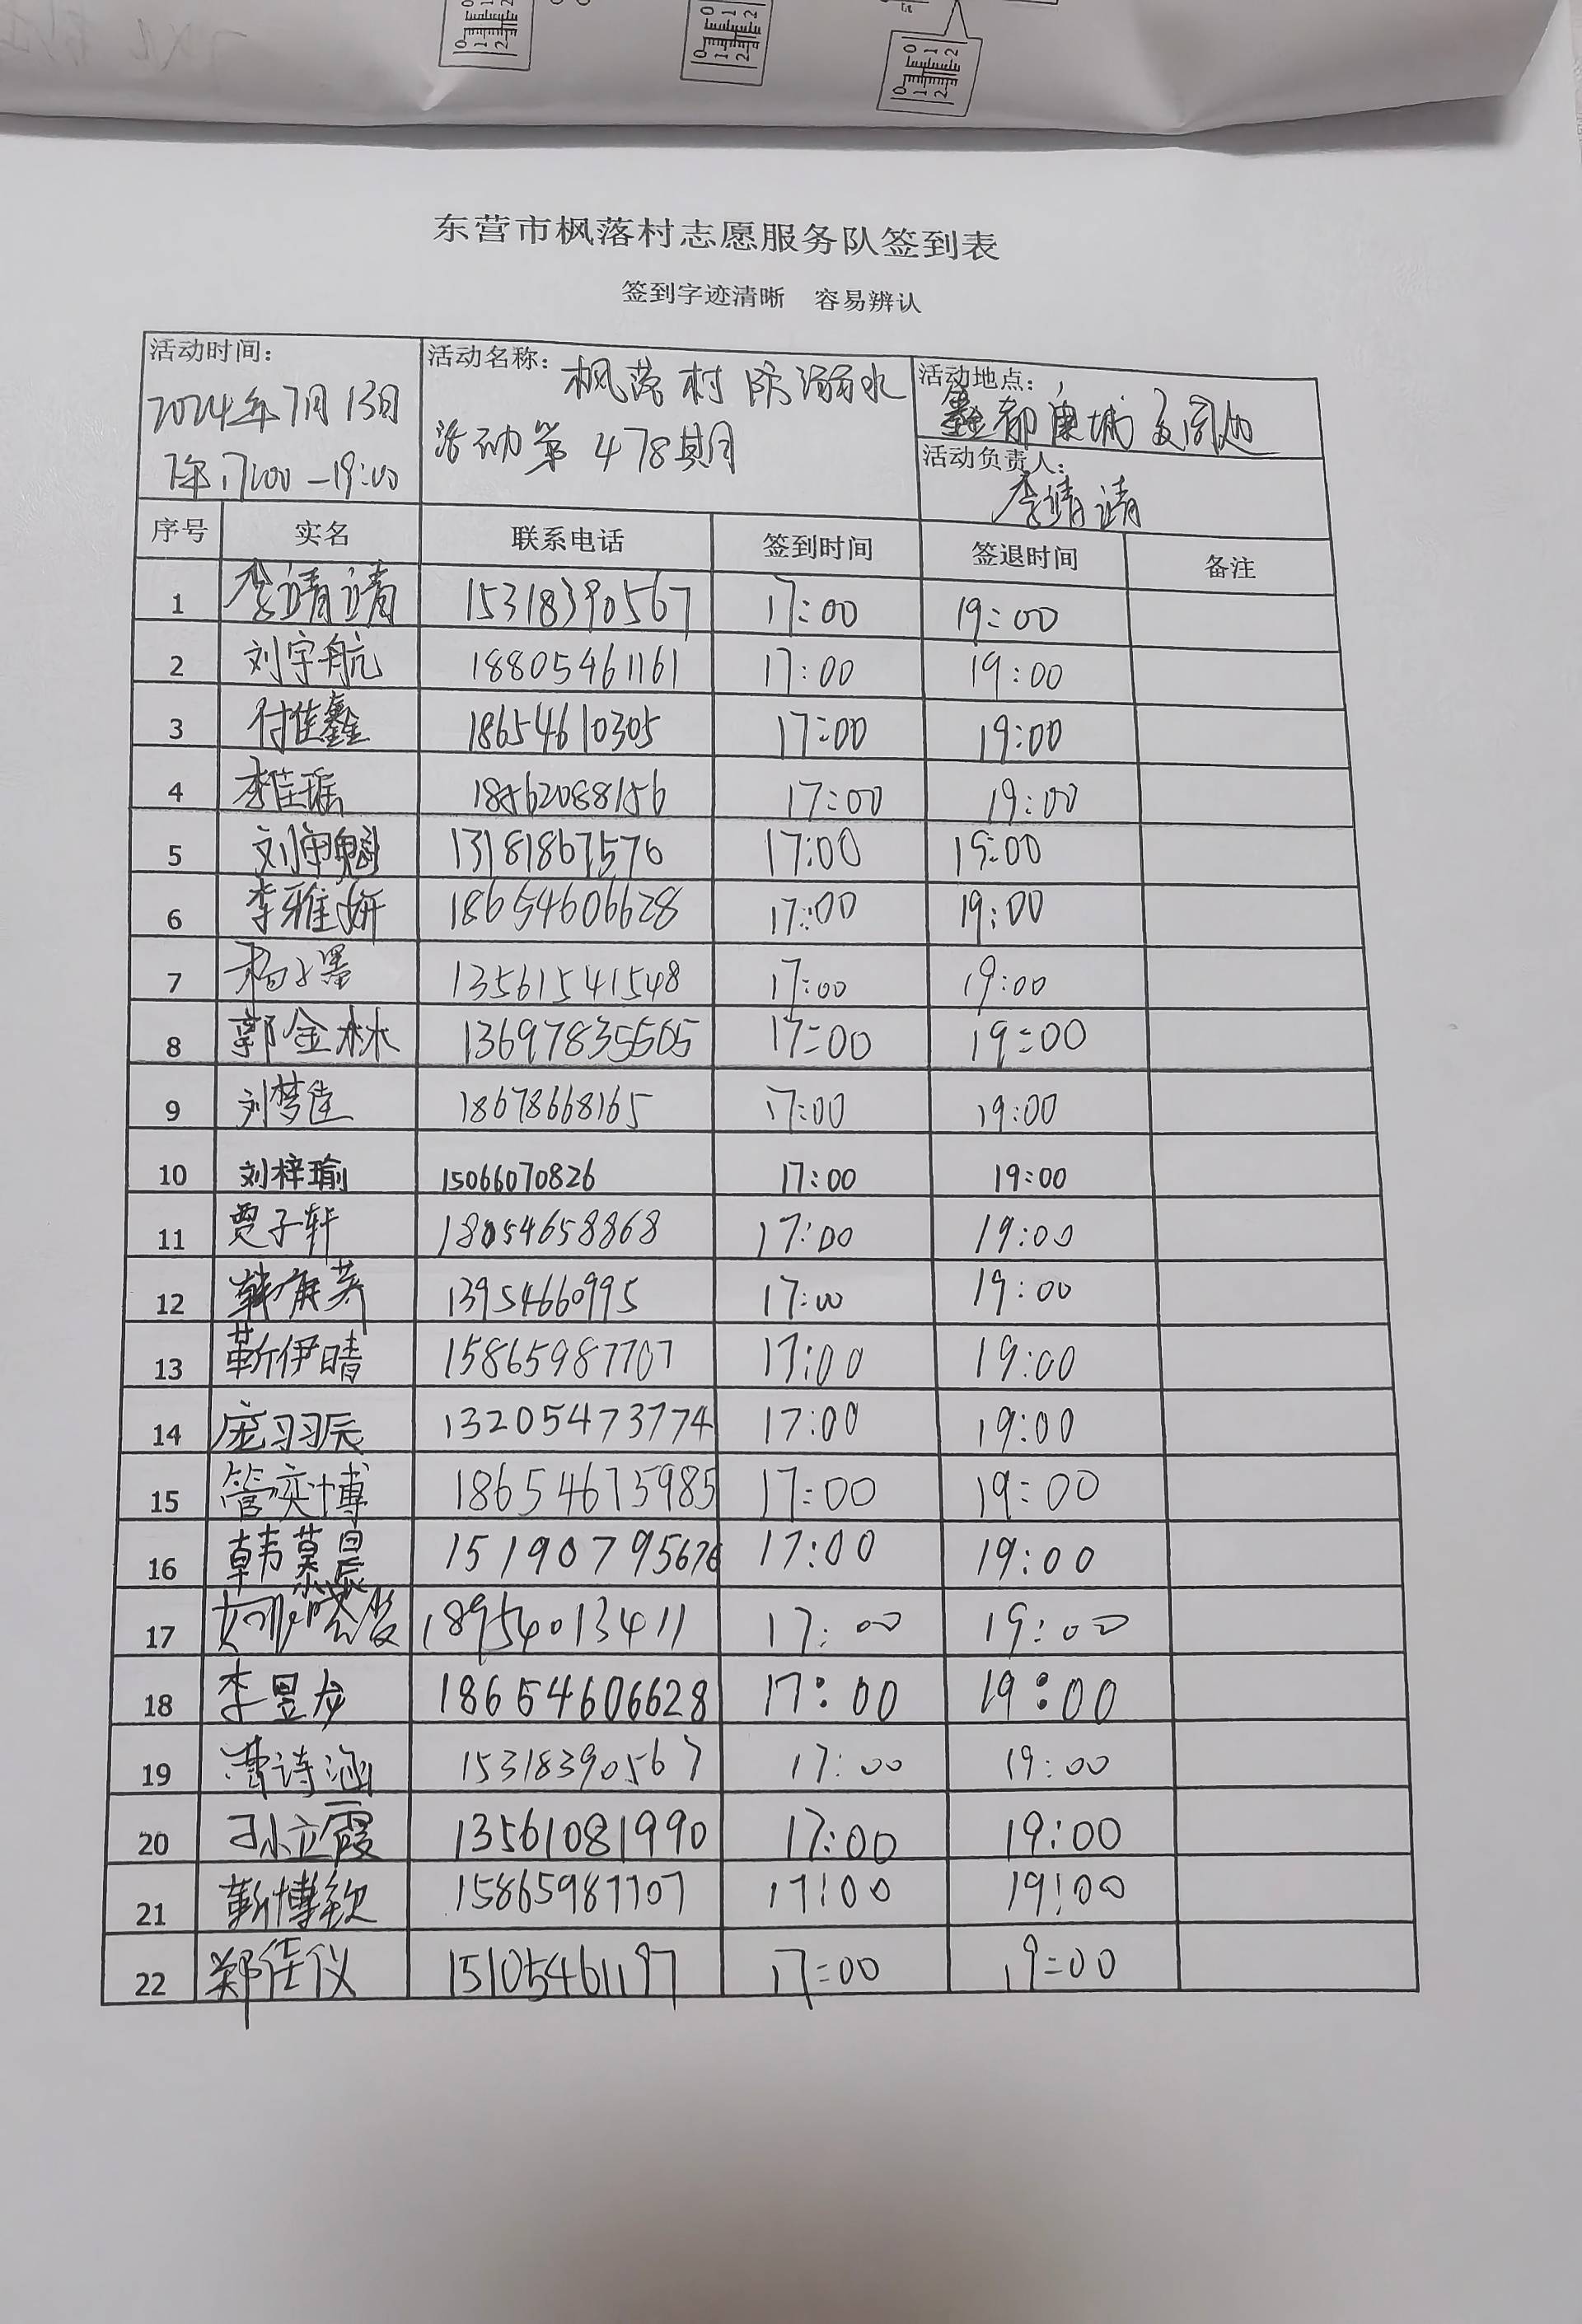 东营市枫落村志愿服务队签到表
签到字迹清晰 容易辨认
活动时间: 活动名称: 枫落村防溺水 活动地点:
2024年7月13日 活动第478期 鑫都康城
下午17:00-19:00 活动负责人:
李靖靖
序号 实名 联系电话 签到时间 签退时间 备注
1 李靖靖 15318390567 17:00 19:00
2 刘宇航 18805461161 17:00 19:00
3 付佳鑫 18654610305 17:00 19:00
4 李佳瑶 18562088156 17:00 19:00
5 刘 13181867576 17:00 19:00
6 李雅妍 18654606628 17:00 19:00
7 杨 13561541548 17:00 19:00
8 郭金林 13697835505 17:00 19:00
9 刘梦佳 18678668165 17:00 19:00
10 刘梓瑜 15066070826 17:00 19:00
11 贾子轩 18054658868 17:00 19:00
12 韩 英 13954660995 17:00 19:00
13 靳伊晴 15865987707 17:00 19:00
14 庞羽辰 13205473774 17:00 19:00
15 管奕博 18654675985 17:00 19:00
16 韩慕晨 15190795676 17:00 19:00
17 18954013411 17:00 19:00
18 李昱龙 18654606628 17:00 19:00
19 曹诗涵 15318390567 17:00 19:00
20 孙立霞 13561081990 17:00 19:00
21 靳博钦 15865987707 17:00 19:00
22 郑佳仪 15105461197 17:00 19:00